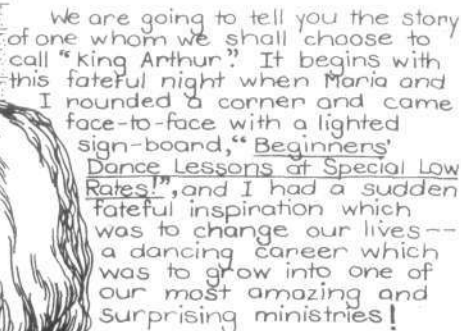 We are going to tell you the story
of one whom we shall choose to
call "King Arthur". It begins with
this fateful night when Maria and
I rounded a corner and came
face-to-face with a lighted
sign-board, "Beginners'
Dance Lessons at Special Low
Rates!", and I had a sudden
fateful inspiration which
was to change our lives--
a dancing career which
was to grow into one of
our most amazing and
surprising ministries!